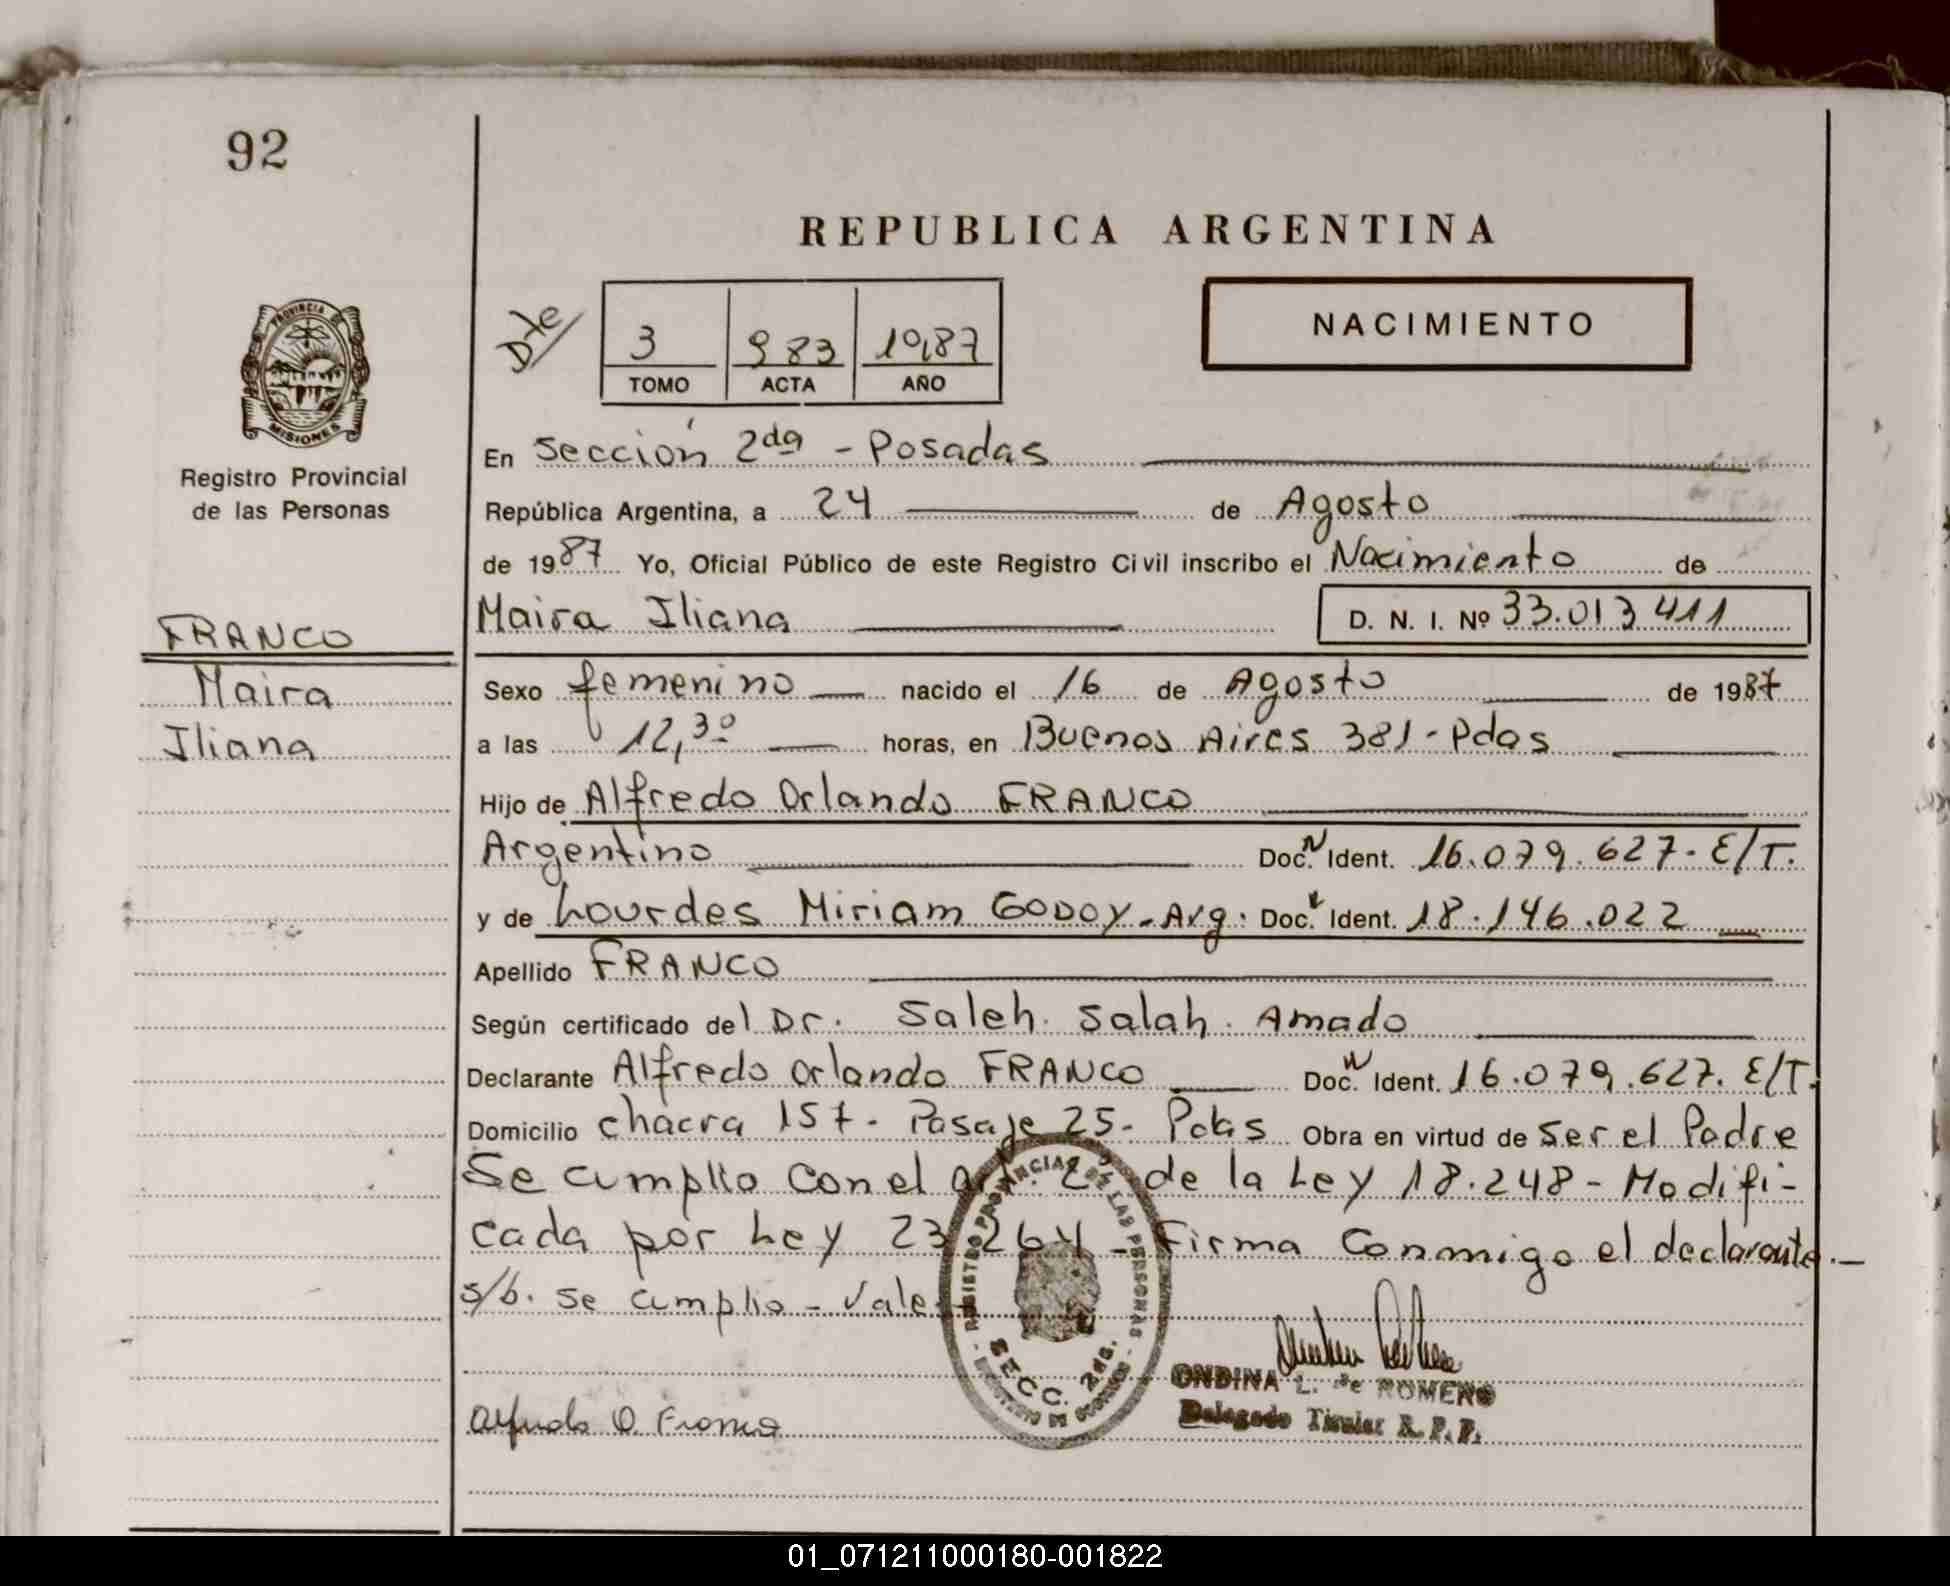 92
REPUBLICA ARGENTINA
Dte
3 983 1987
TOMO ACTA AÑO
NACIMIENTO
PROVINCIA DE
MISIONES
Registro Provincial
de las Personas
FRANCO
Maira
Iliana
En Sección 2da - Posadas
República Argentina, a 24 de Agosto
de 1987 Yo, Oficial Público de este Registro Civil inscribo el Nacimiento de
Maira Iliana D. N. I. Nº 33.013 411
Sexo femenino nacido el 16 de Agosto de 1987
a las 12,30 horas, en Buenos Aires 381 - Pdas
Hijo de Alfredo Orlando FRANCO
Argentino Doc. N Ident. 16.079.627. E/T.
y de Lourdes Miriam GODOY - Arg. Doc. Ident. 18.146.022
Apellido FRANCO
Según certificado del Dr. Saleh. Salah. Amado
Declarante Alfredo Orlando FRANCO Doc. N Ident. 16.079.627. E/T.
Domicilio chacra 157 - Pasaje 25 - Pdas Obra en virtud de ser el Padre
Se cumplio con el art. 2 de la Ley 18.248 - Modifi-
cada por Ley 23.264 - Firma Conmigo el declarante.-
s/b. se cumplio - Vale
REGISTRO PROVINCIAL DE LAS PERSONAS
SECC. 2da.
ONDINA L. de ROMERO
Delegado Titular R. P. P.
Alfredo O. Franco
01_071211000180-001822